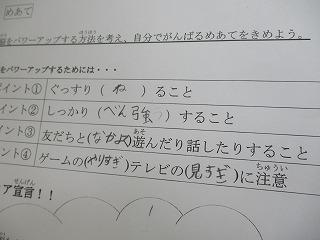 めあて
をパワーアップする方法を考え、自分でがんばるめあてをきめよう。
ほうほう
をパワーアップするためには・・・
イント① ぐっすり(ね)ること
ポイント② しっかり(べん強)すること
ポイント③ 友だちと(なかよく)遊んだり話したりすること
あそ
イント④ ゲームの(やりすぎ)テレビの(見すぎ)に注意
ちゅうい
ア宣言!!
せんげん
1